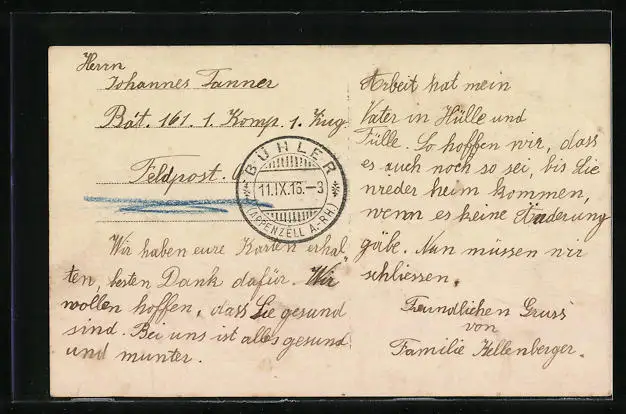 Herrn
Johannes Tanner
Bat. 161. 1. Komp. 1. Zug
Feldpost.
BÜHLER
11.IX.16.–3
(APPENZELL A.-RH.)
Wir haben eure Karten erhal-
ten, besten Dank dafür. Wir
wollen hoffen, dass Sie gesund
sind. Bei uns ist alles gesund
und munter.
Arbeit hat mein
Vater in Hülle und
Fülle. So hoffen wir, dass
es auch noch so sei, bis Sie
wieder heim kommen,
wenn es keine Änderung
gäbe. Nun müssen wir
schliessen.
Freundlichen Gruss
von
Familie Kellenberger.